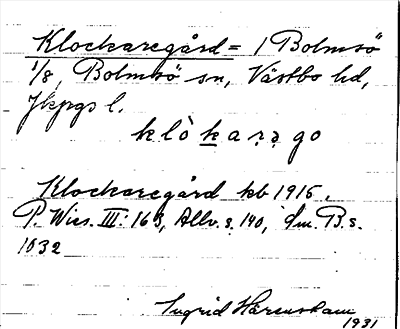 Klockaregård = 1 Bolmsö
1/8, Bolmsö sn, Västbo hd,
Jkpgs l.
klò kaṛə̣ go
Klockaregård kb 1915.
P. Wies. III: 163, Allv. s. 140, dm. B. s.
1032
Ingrid Härenstam
1931